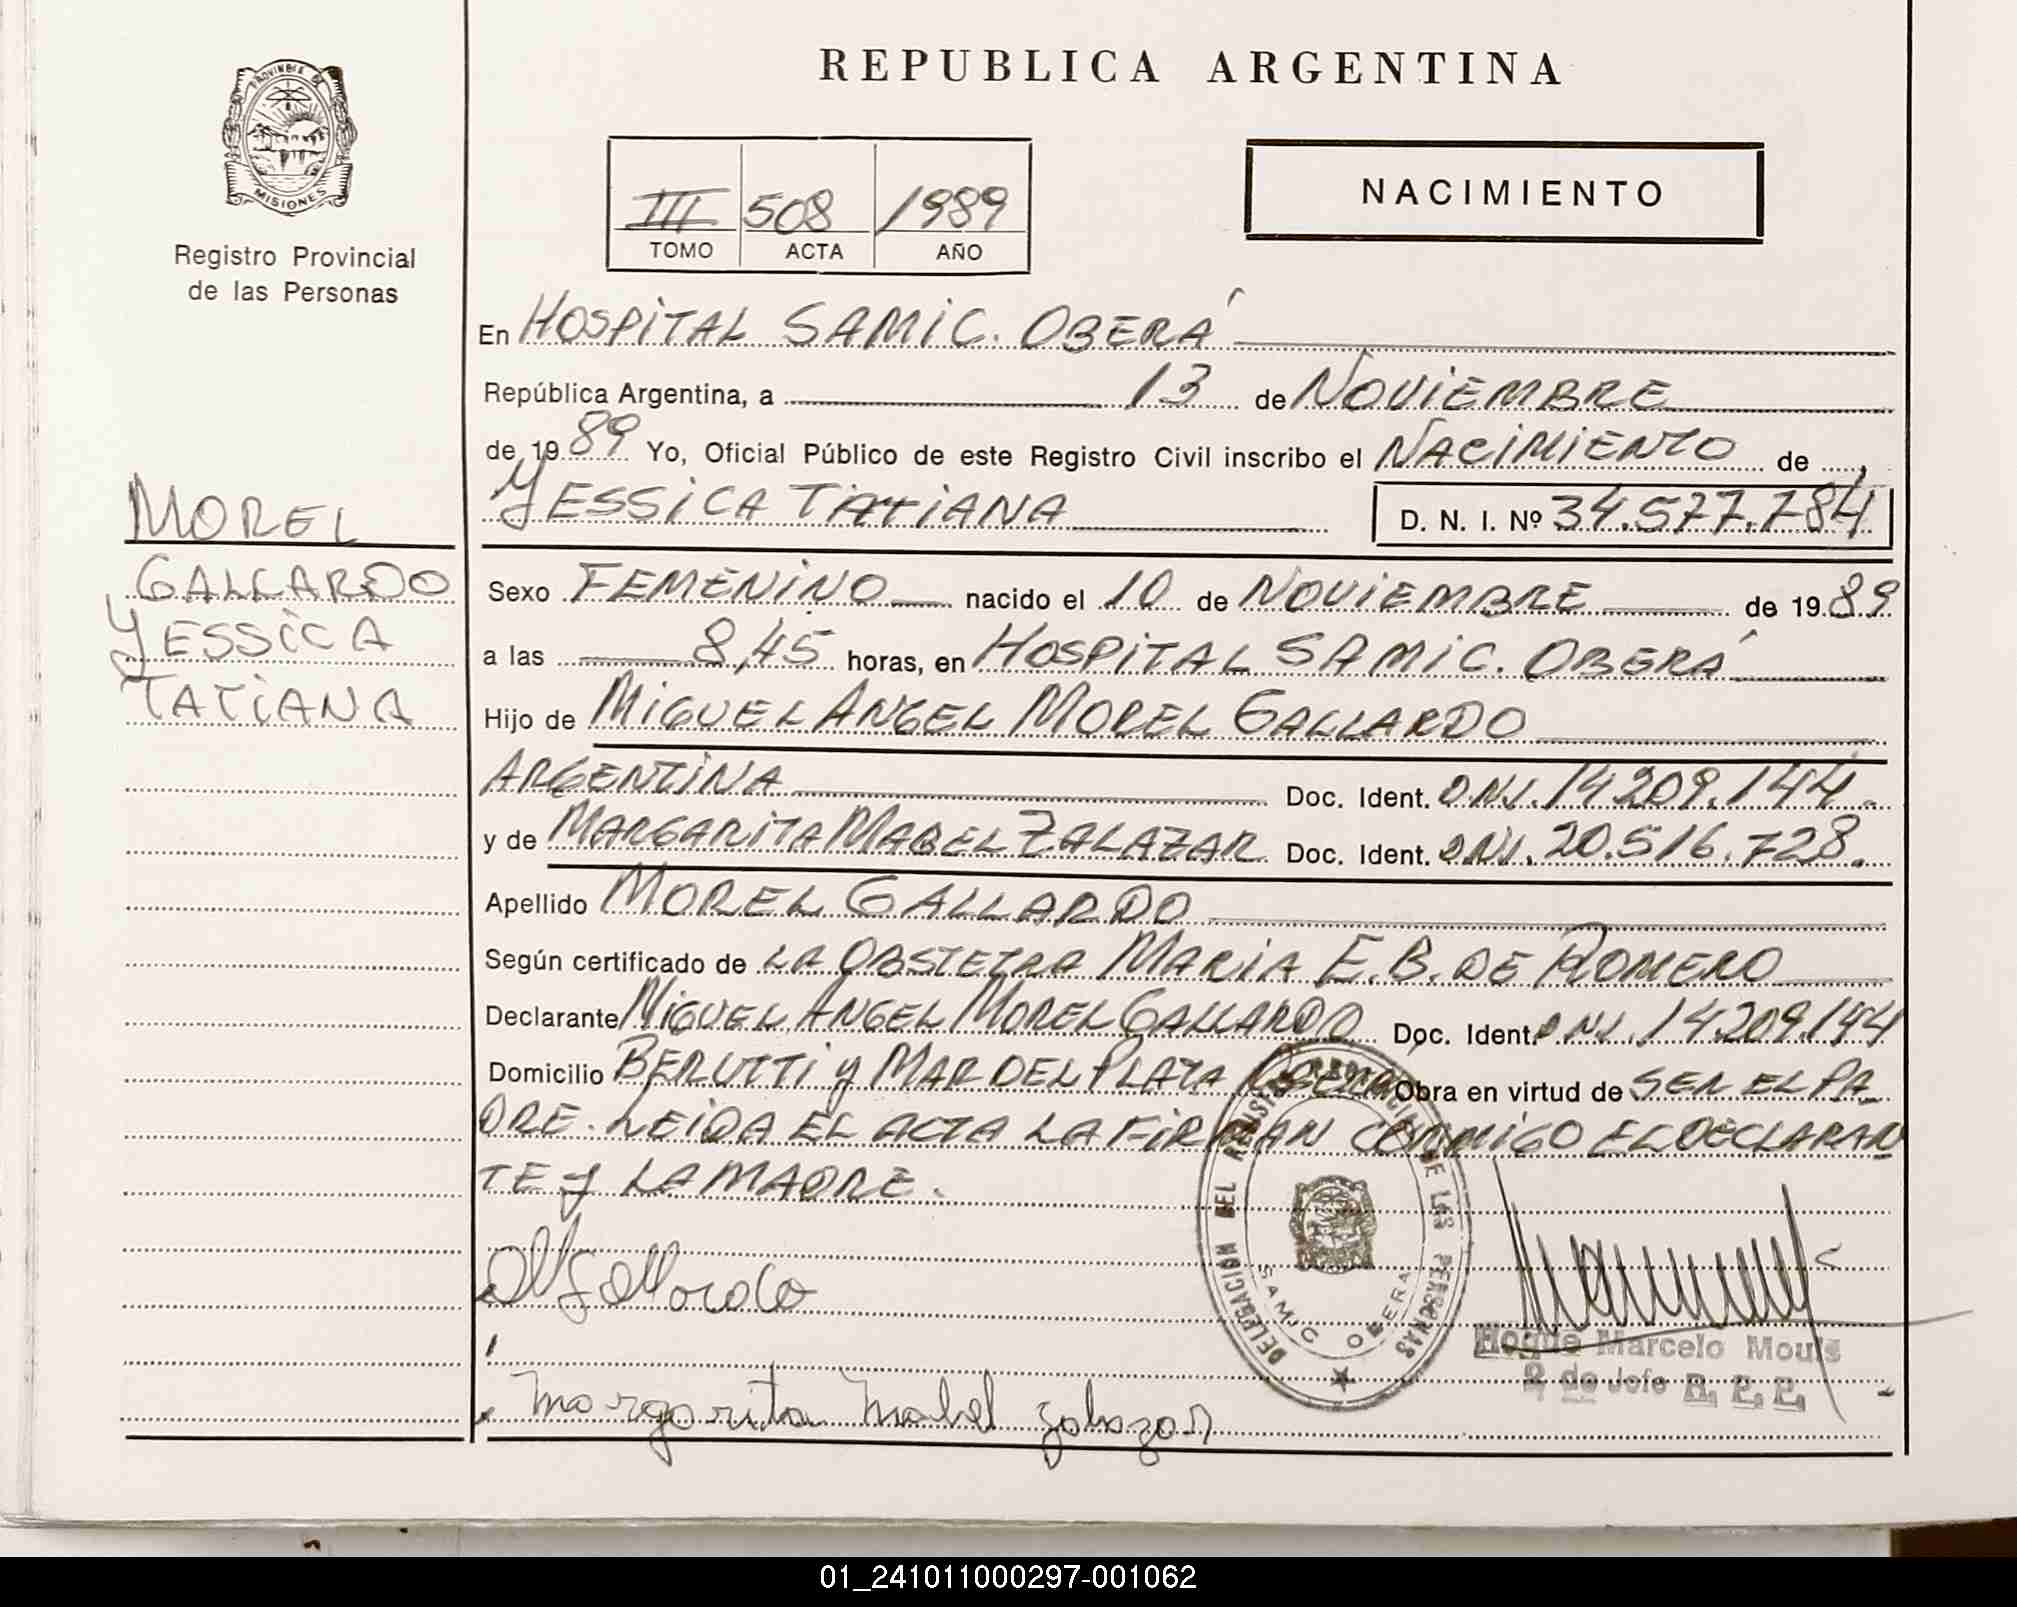 REPUBLICA ARGENTINA
PROVINCIA DE
MISIONES
Registro Provincial
de las Personas
III 508 1989
TOMO ACTA AÑO
NACIMIENTO
MOREL
GALLARDO
YESSICA
TATIANA
En HOSPITAL SAMIC. OBERÁ
República Argentina, a 13 de NOVIEMBRE
de 1989 Yo, Oficial Público de este Registro Civil inscribo el NACIMIENTO de
YESSICA TATIANA D. N. I. Nº 34.577.784
Sexo FEMENINO nacido el 10 de NOVIEMBRE de 1989
a las 8,45 horas, en HOSPITAL SAMIC. OBERÁ
Hijo de MIGUEL ANGEL MOREL GALLARDO
ARGENTINA Doc. Ident. DNI. 14.209.144.
y de MARGARITA MABEL ZALAZAR Doc. Ident. DNI. 20.516.728.
Apellido MOREL GALLARDO
Según certificado de LA OBSTETRA MARIA E.B. DE ROMERO
Declarante MIGUEL ANGEL MOREL GALLARDO Doc. Ident. DNI. 14.209.144
Domicilio BERUTTI y MAR DEL PLATA OBERÁ Obra en virtud de SER EL PA
DRE. LEIDA EL ACTA LA FIRMAN CONMIGO EL DECLARAN
TE y LA MADRE.
Gallardo
Margarita Mabel Zalazar
DELEGACION DEL REGISTRO PROVINCIAL DE LAS PERSONAS
SAMIC OBERA
Roque Marcelo Mouls
2 do Jefe R. P. P.
01_241011000297-001062